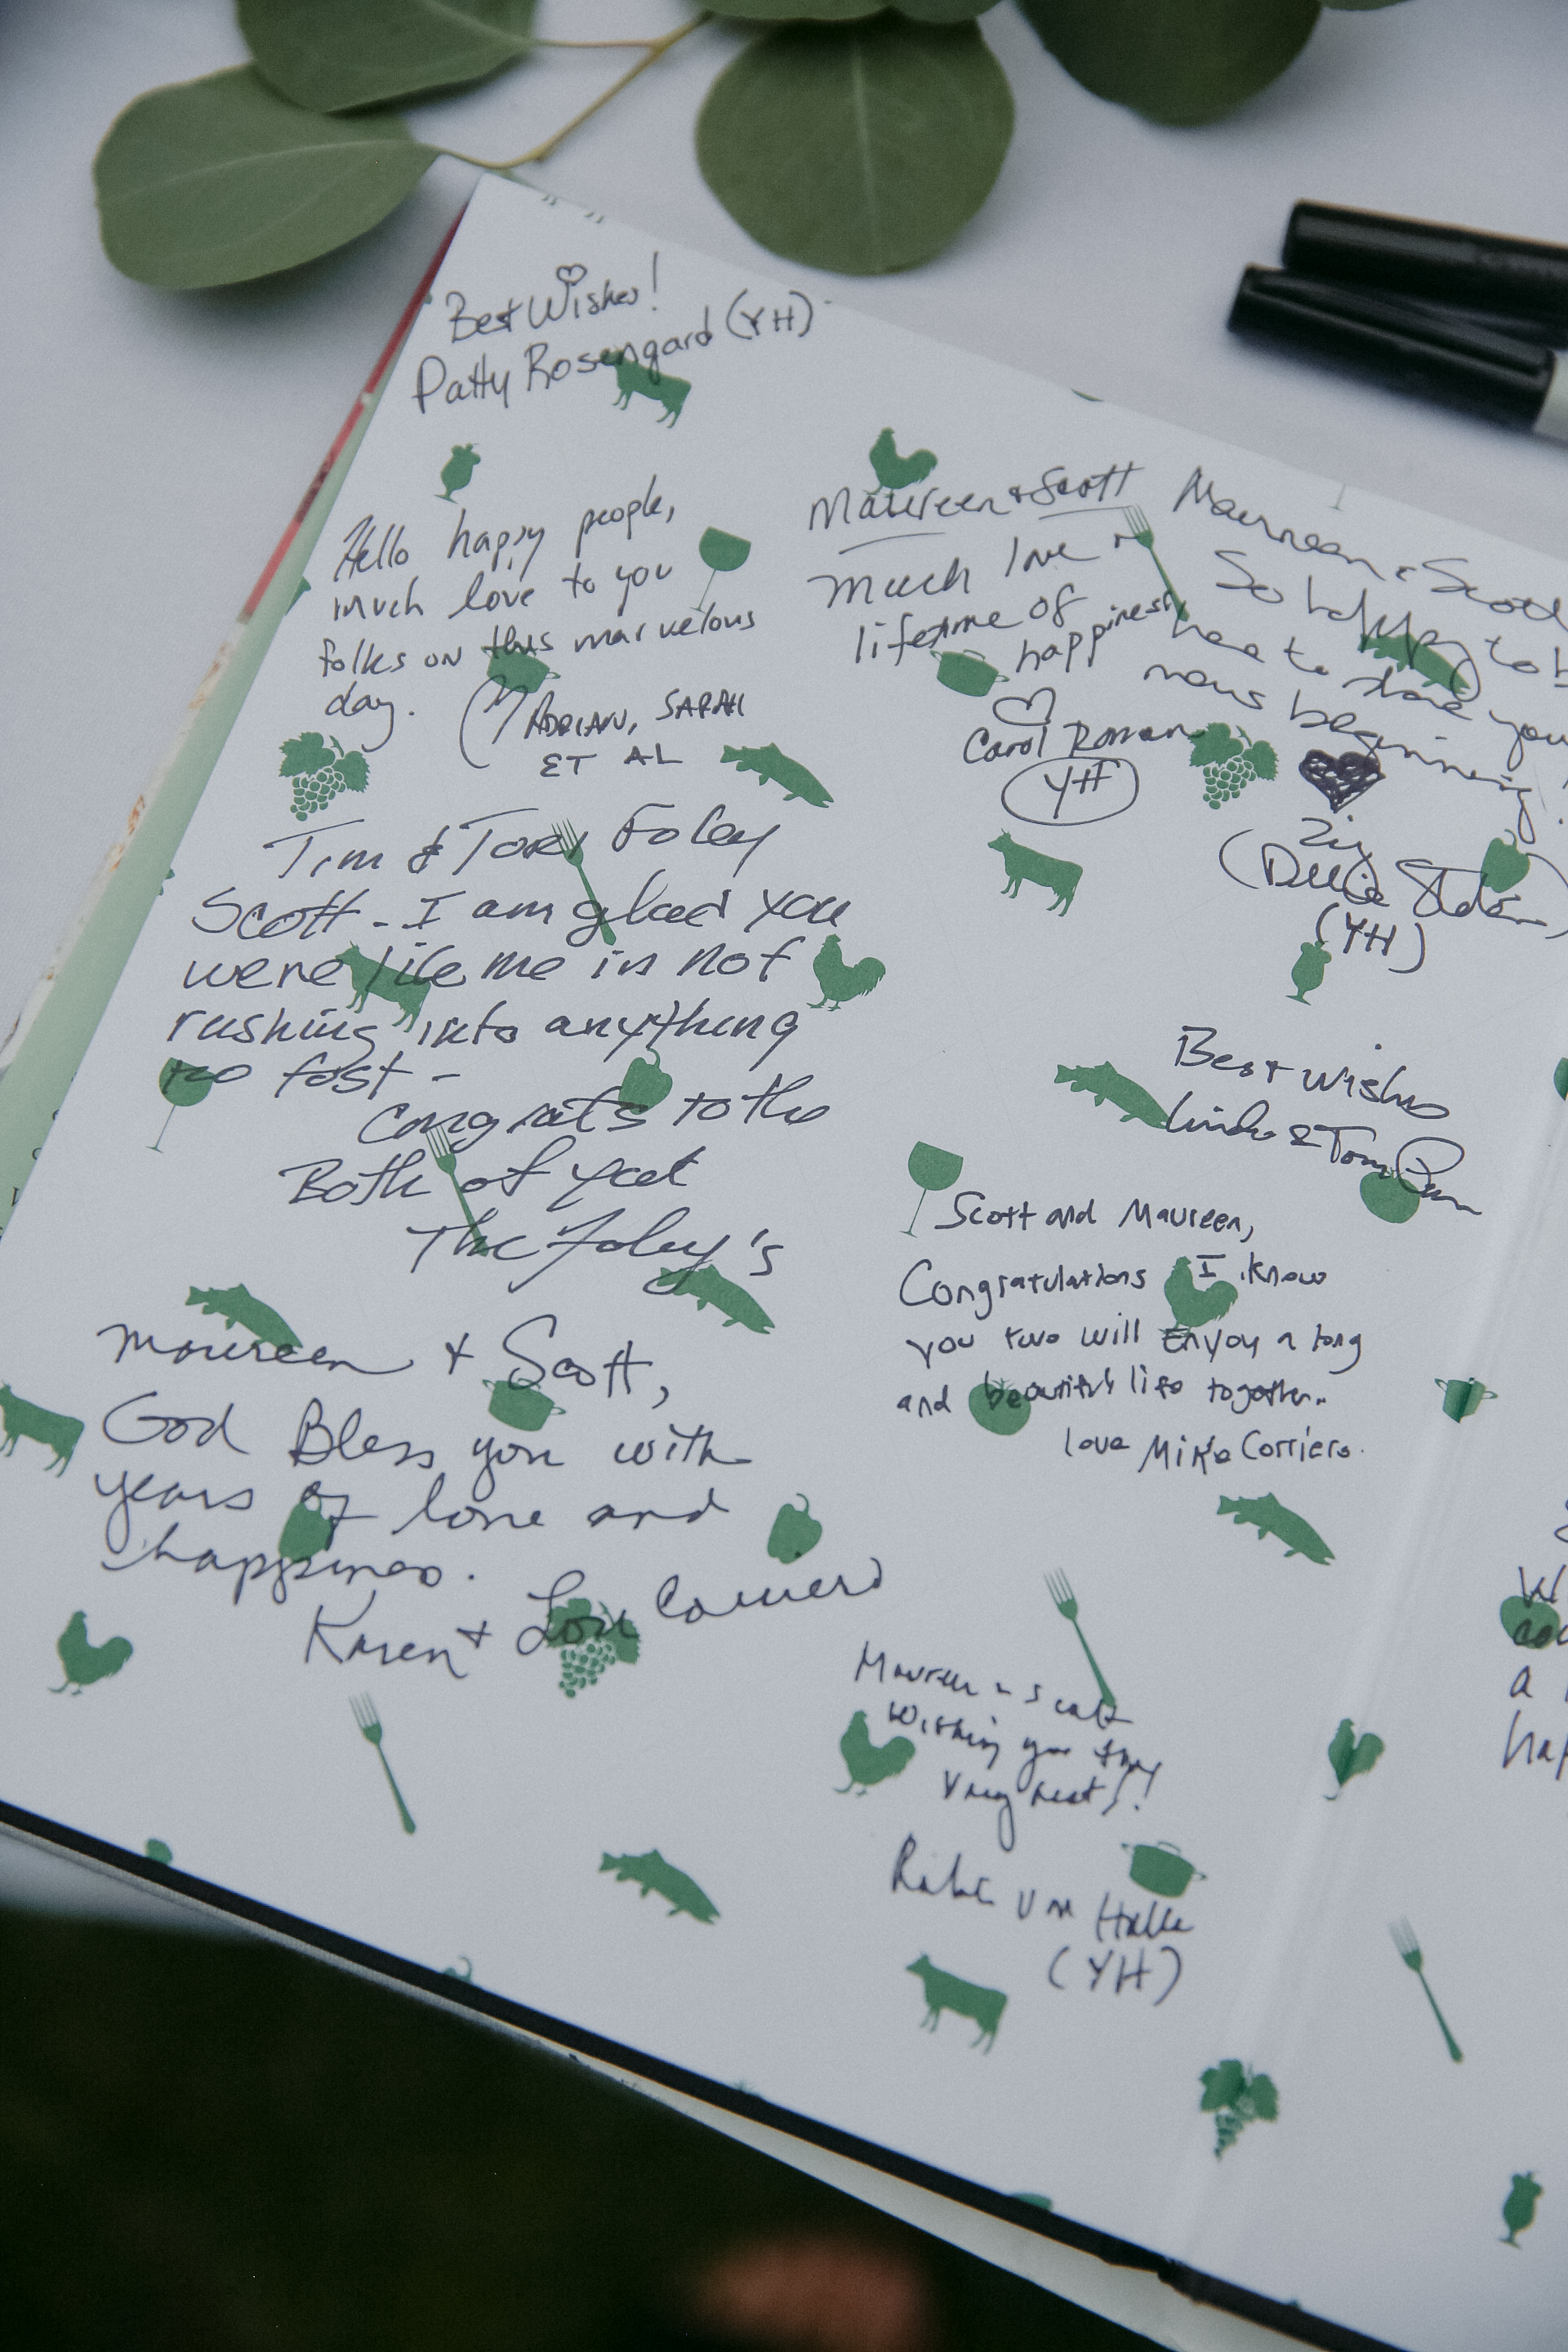 Best Wishes!
Patty Rosengard (YH)
Hello happy people,
much love to you
folks on this marvelous
day.
ADRIAN, SARAH
ET AL
Tim & Tori Foley
Scott - I am glad you
were like me in not
rushing into anything
too fast -
Congrats to the
Both of you
The Foley's
Maureen + Scott,
God Bless you with
years of love and
happiness.
Karen + Lou
Maureen + Scott
Much love +
lifetime of
happiness
Carol Roman
YH
Maureen & Scott
So happy to
here to share your
beginning!
(YH)
Best wishes
Linda & Tom
Scott and Maureen,
Congratulations I know
you two will Enjoy a long
and beautiful life together.
love Mike Corriero.
Maureen + Scott
Wishing you the
Very best!
Von Halle
(YH)
a